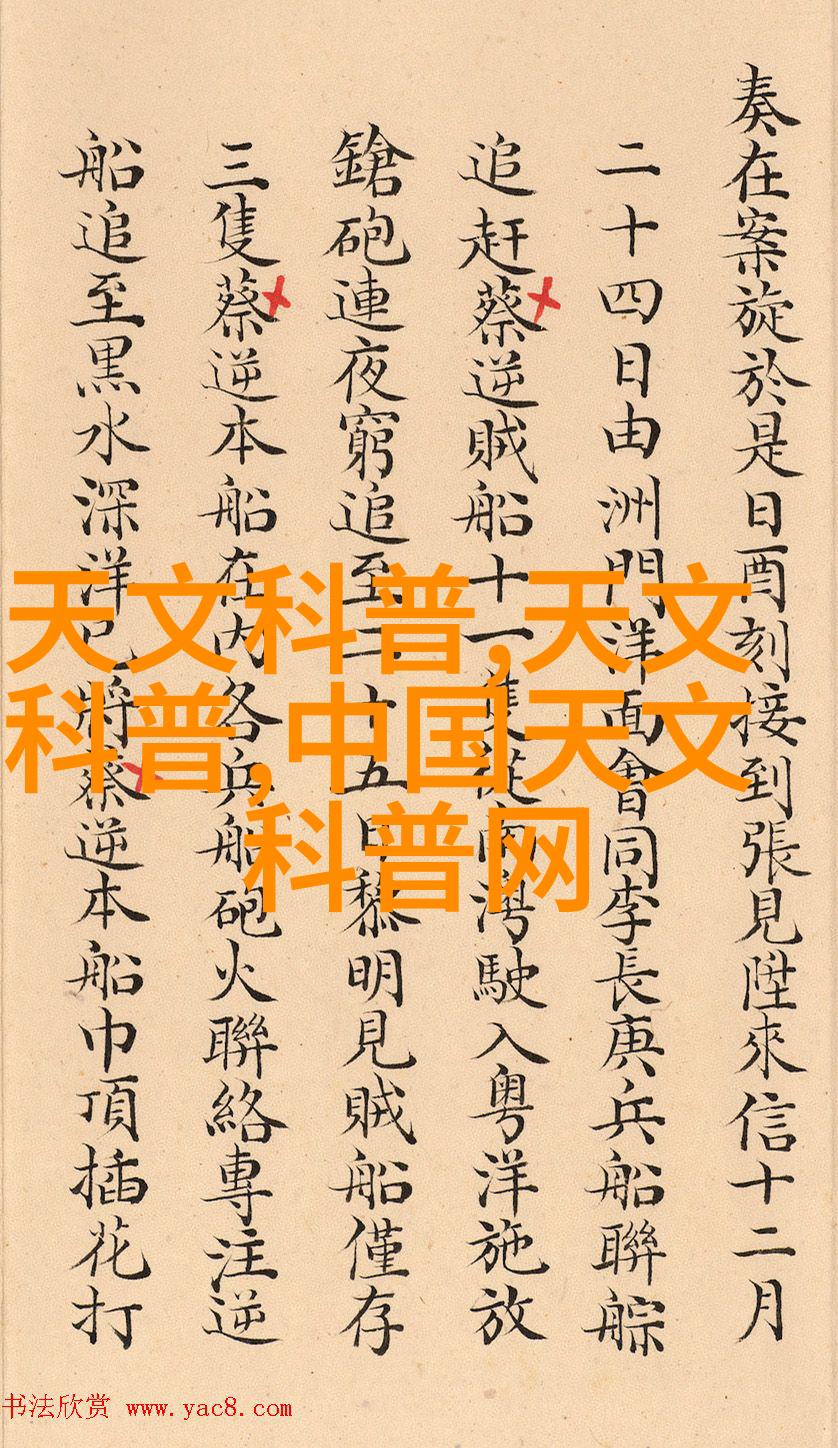 奏在案旋於是日酉刻接到張見陞來信十二月
二十四日由洲門洋面會同李長庚兵船聯䑸
追赶蔡逆賊船十一隻從灣駛入粤洋施放
鎗砲連夜窮追至二十五日黎明見賊船僅存
三隻蔡逆本船在内各兵船砲火聯絡專注逆
船追至黒水深洋已將蔡逆本船巾頂插花打
天文科普,天文
科普,中国天文
科普网
书法欣赏 www.yac8.com